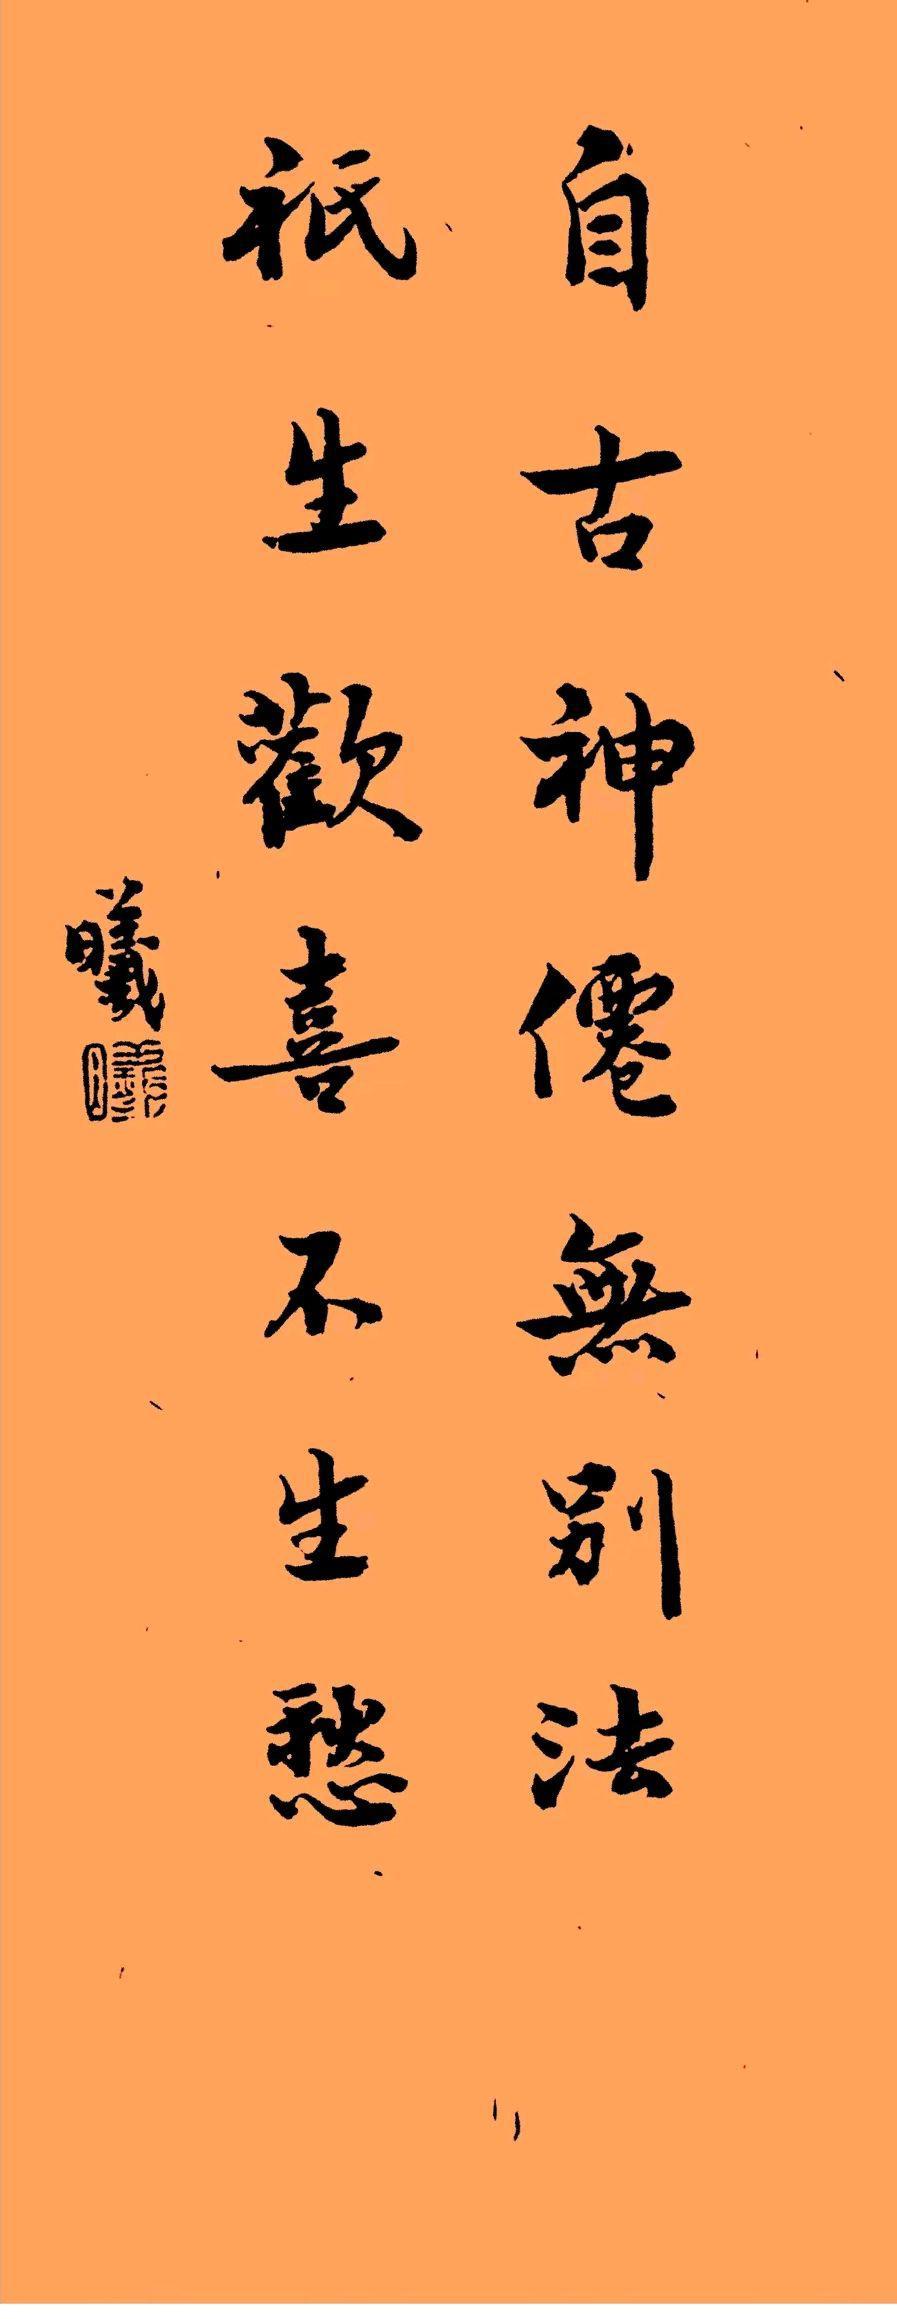 自古神僊無別法
祇生歡喜不生愁
曦
曦